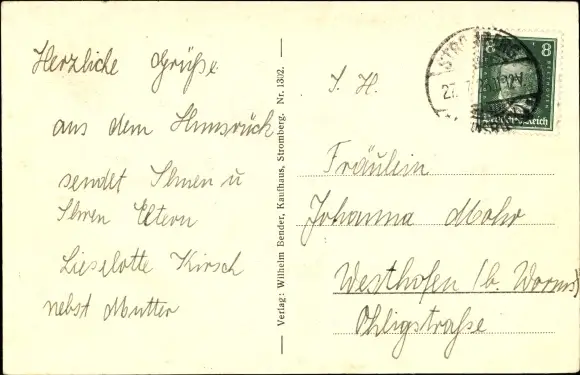 Herzliche Grüße
aus dem Hunsrück
sendet Ihnen u
Ihren Eltern
Lieselotte Kirsch
nebst Mutter
Verlag: Wilhelm Bender, Kaufhaus, Stromberg. Nr. 1332.
S. H.
Fräulein
Johanna Mohr
Westhofen (b. Worms)
Ohligstraße
8 8
Deutsches Reich
STROMBERG
27.